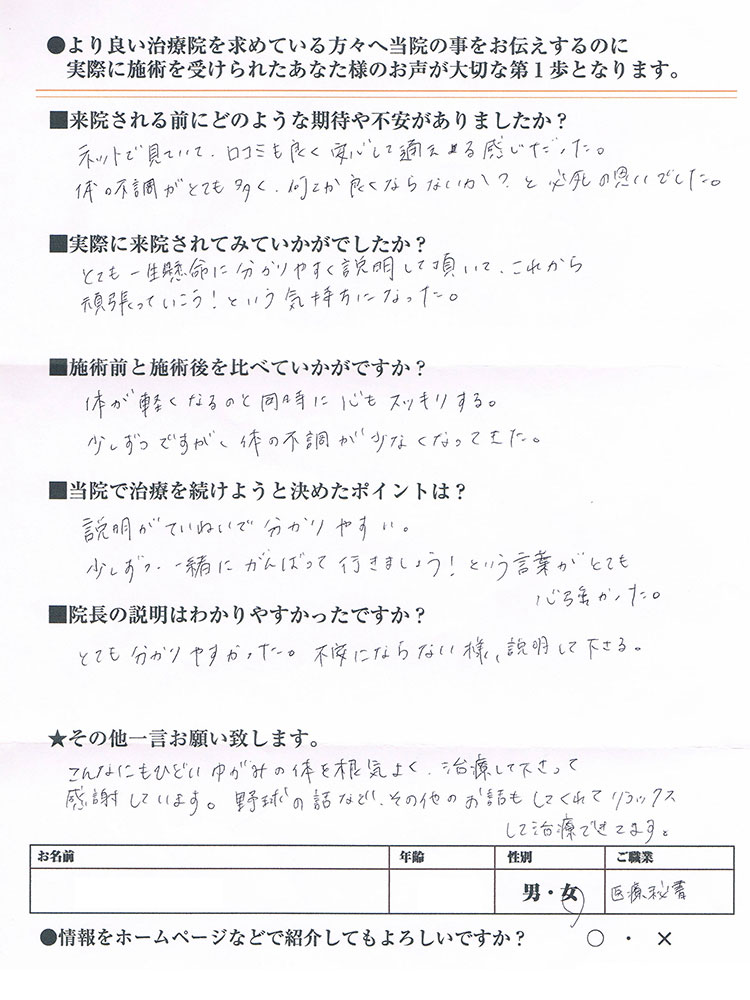 ●より良い治療院を求めている方々へ当院の事をお伝えするのに
実際に施術を受けられたあなた様のお声が大切な第1歩となります。
■来院される前にどのような期待や不安がありましたか？
ネットで見ていて、口コミも良く安心して通える感じだった。
体の不調がとても多く、何とか良くならないか？と必死の思いでした。
■実際に来院されてみていかがでしたか？
とても一生懸命に分かりやすく説明して頂いて、これから
頑張っていこう！という気持ちになった。
■施術前と施術後を比べていかがですか？
体が軽くなるのと同時に心もスッキリする。
少しずつですが、体の不調が少なくなってきた。
■当院で治療を続けようと決めたポイントは？
説明がていねいで分かりやすい。
少しずつ、一緒にがんばって行きましょう！という言葉がとても
心強かった。
■院長の説明はわかりやすかったですか？
とても分かりやすかった。不安にならない様、説明して下さる。
★その他一言お願い致します。
こんなにもひどいゆがみの体を根気よく、治療して下さって
感謝しています。野球の話など、その他のお話もしてくれてリラックス
して治療できてます。
お名前 年齢 性別 ご職業
男・女 医療秘書
●情報をホームページなどで紹介してもよろしいですか？ ○ ・ ×